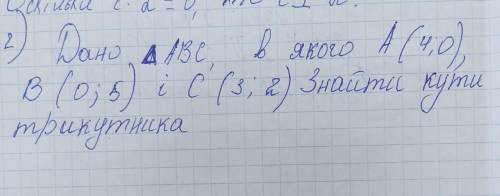 2) Дано ΔABC, в якого A(4;0),
B (0;5) і C (3;2) Знайти кути
трикутника